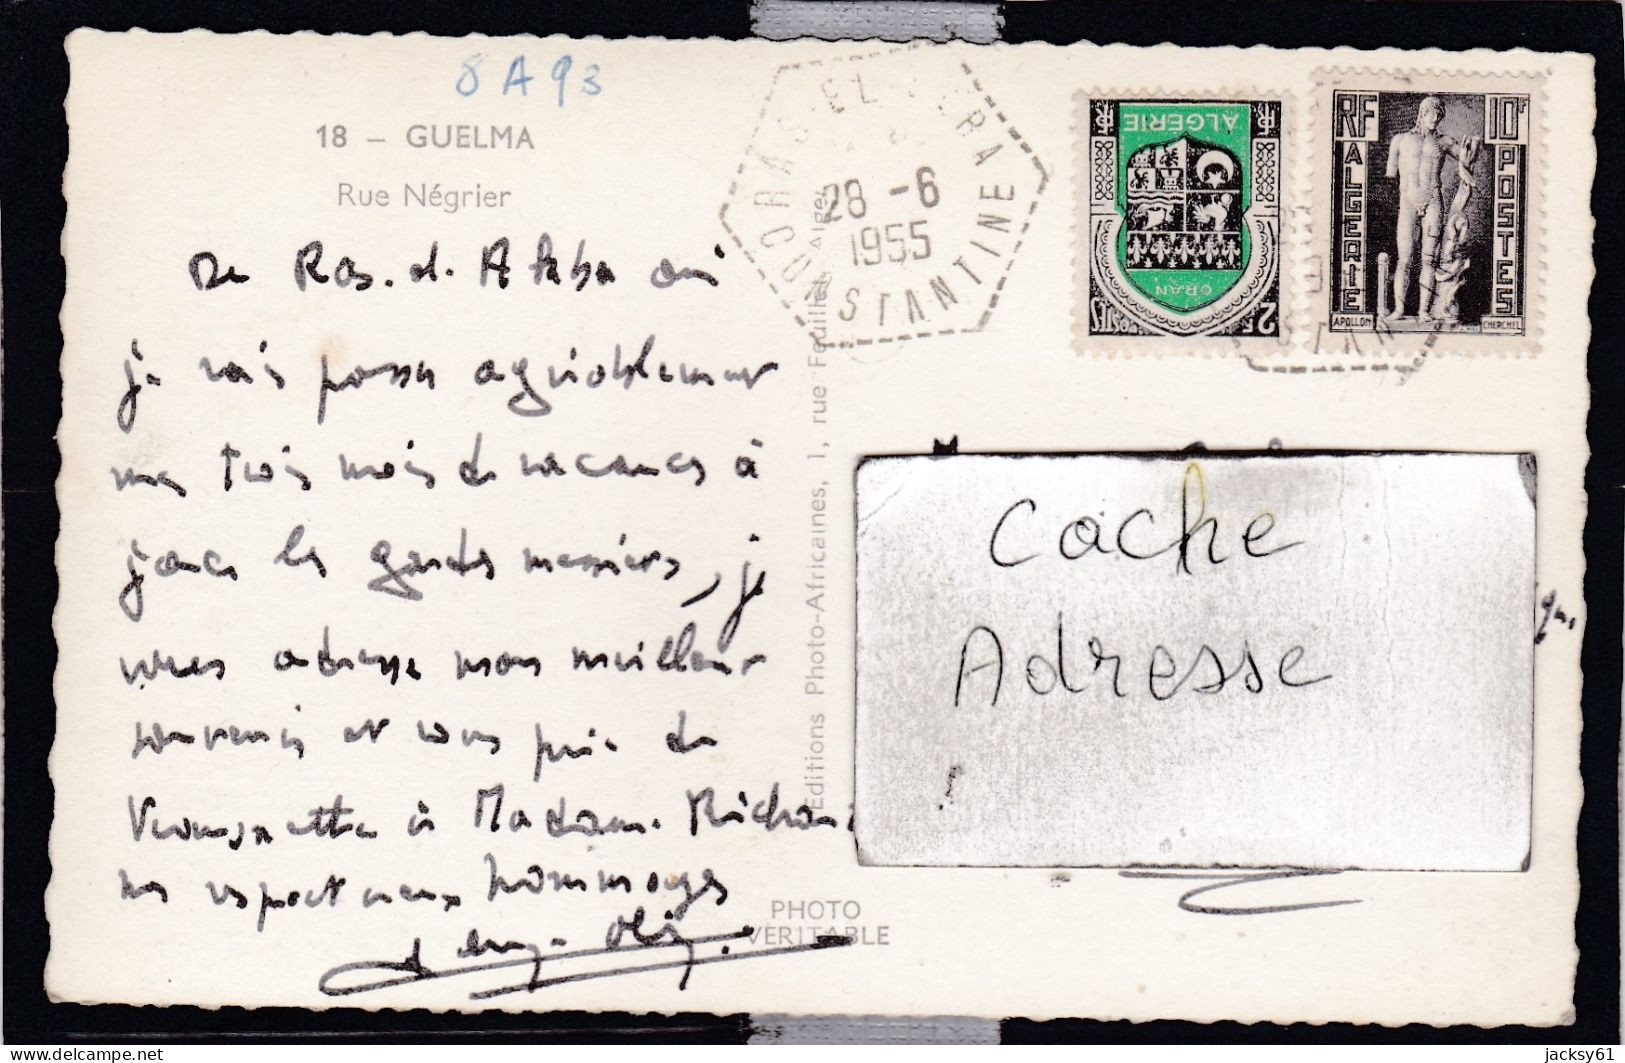 8 A 93
18 – GUELMA
Rue Négrier
De Ras. el. Akba où
je vais passer agréablement
mes trois mois de vacances à
jouer les gardes messiers, je
vous adresse mon meilleur
souvenir et vous prie de
transmettre à Madame Richard
mes respectueux hommages
Editions Photo-Africaines, 1, rue Feuillet, Alger
PHOTO
VÉRITABLE
28 -6
1955
CONSTANTINE
ALGÉRIE
ORAN
2F
POSTES
RF
10F
ALGERIE
POSTES
APOLLON
CHERCHEL
Cache
Adresse
jacksy61